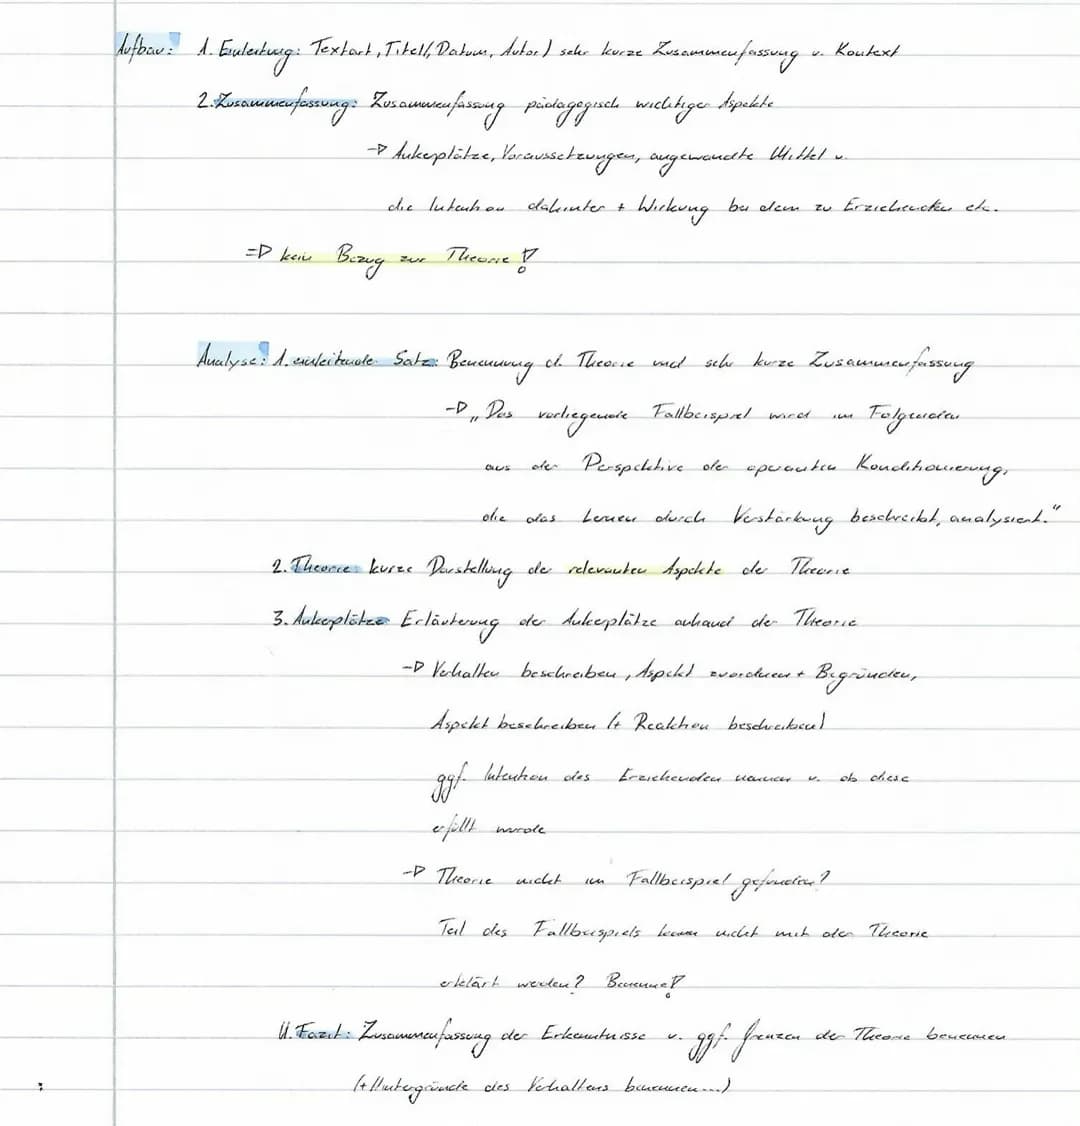 Aufbau: 1. Einleitung: Textart, Titel, Datum, Autor) sehr kurze Zusammenfassung u. Kontext
2. Zusammenfassung: Zusammenfassung pädagogisch wichtiger Aspekte
-> Ankerplätze, Voraussetzungen, angewandte Mittel u.
die Intention dahinter + Wirkung bei dem zu Erziehenden etc.
=> kein Bezug zur Theorie!
Analyse: 1. einleitende Satz: Benennung d. Theorie und sehr kurze Zusammenfassung
-> "Das vorliegende Fallbeispiel wird im Folgenden
aus der Perspektive der operanten Konditionierung,
die das Lernen durch Verstärkung beschreibt, analysiert."
2. Theorie: kurze Darstellung der relevanten Aspekte der Theorie
3. Ankerplätze Erläuterung der Ankerplätze anhand der Theorie
-> Verhalten beschreiben, Aspekt zuordnen + Begründen,
Aspekt beschreiben (+ Reaktion beschreiben)
ggf. Intention des Erziehenden nennen u. ob diese
erfüllt wurde
-> Theorie nicht im Fallbeispiel gefunden?
Teil des Fallbeispiels kann nicht mit der Theorie
erklärt werden? Benenne!
4. Fazit: Zusammenfassung der Erkenntnisse u. ggf. Grenzen der Theorie benennen
(+ Hintergründe des Verhaltens benennen...)